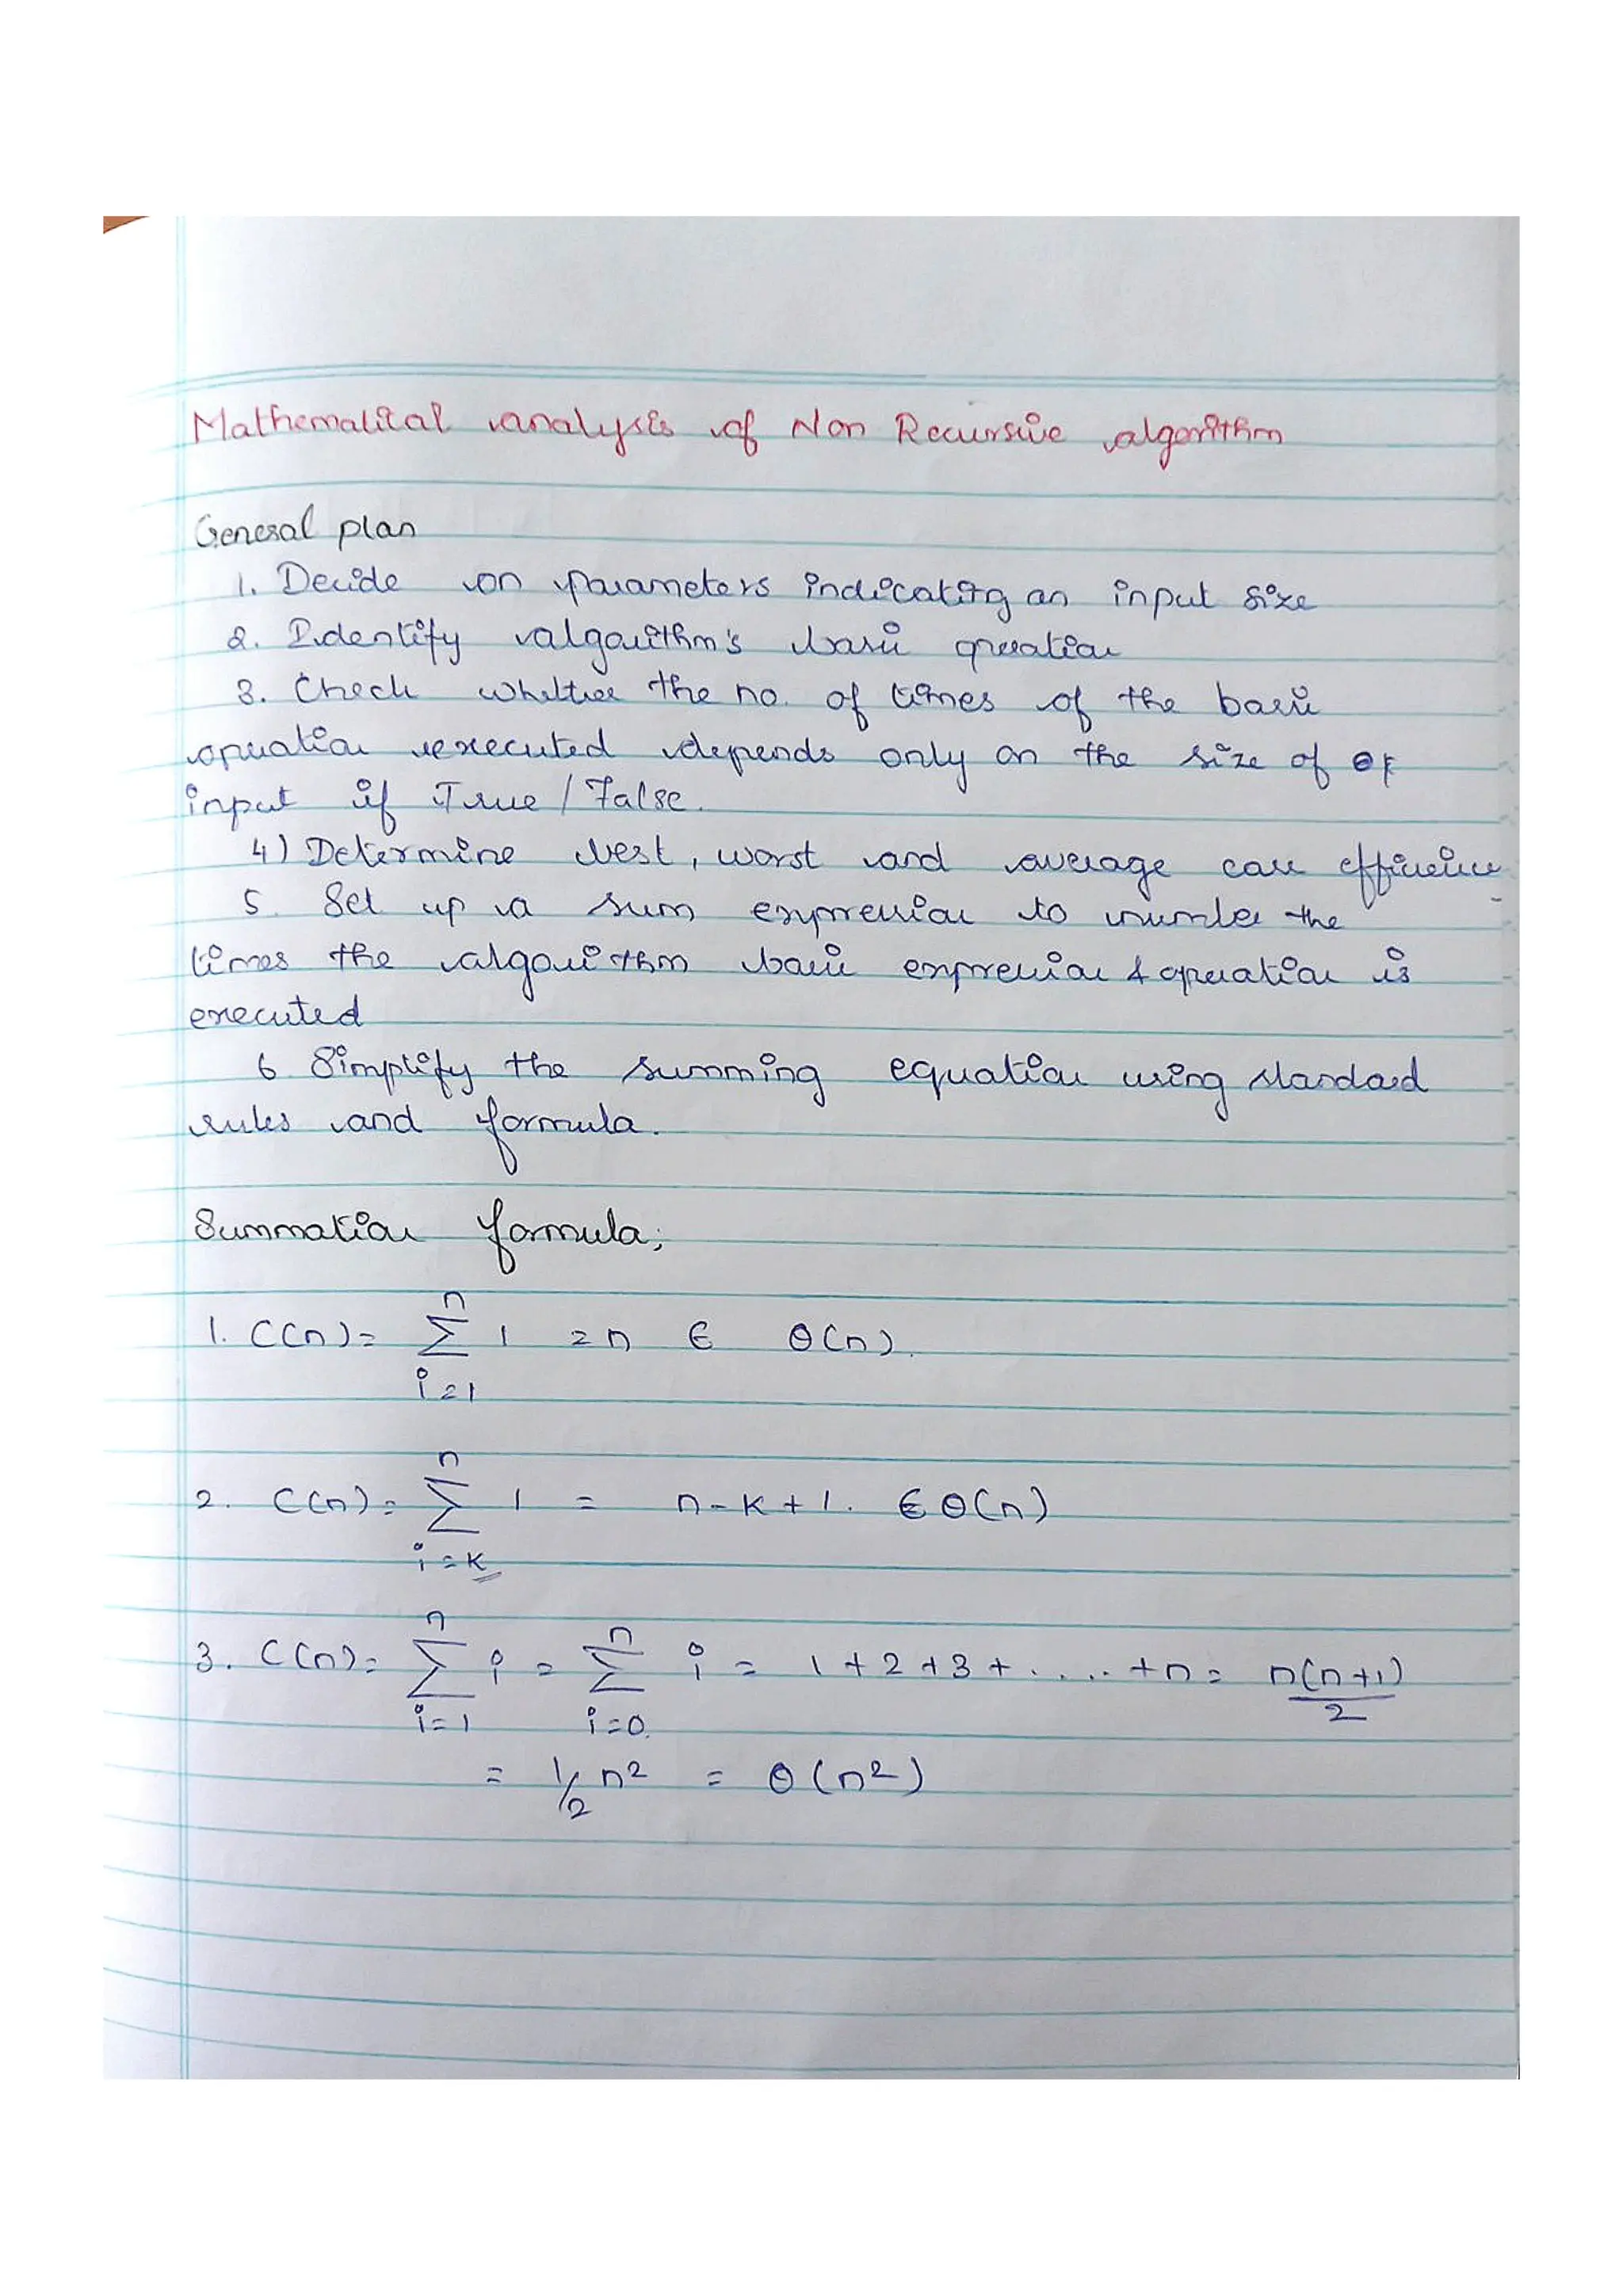 Mathematical analysis of Non Recursive algorithm
General plan
1. Decide on parameters indicating an input size
2. Identify algorithm's basic operation
3. Check whether the no. of times of the basic
operation executed depends only on the size of of
input if True / False.
4) Determine best, worst and average case efficience
5. Set up a sum expression to number the
times the algorithm basic expression & operation is
executed
6 Simplify the summing equation using standard
rules and formula.
Summation formula;
1. C(n) = n Σ i=1 1 = n ∈ Θ(n).
2. C(n) = n Σ i=k 1 = n-k+1. ∈ Θ(n)
3. C(n) = n Σ i=1 i = n Σ i=0. i = 1+2+3+.....+n = n(n+1)/2
= 1/2 n² = Θ(n²)